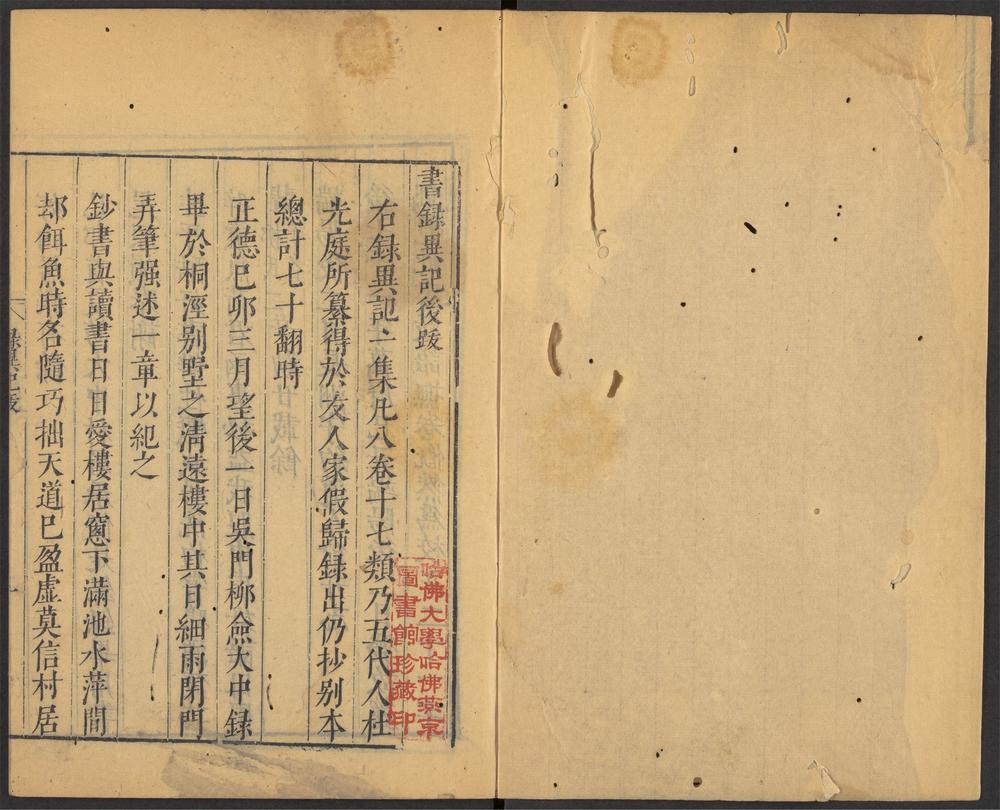 書録異記後跋
右録異記一集凡八卷十七類乃五代人杜
光庭所纂得於友人家假歸録出仍抄别本
總計七十翻時
正德巳卯三月望後一日吳門栁僉大中録
畢於桐涇别墅之清遠樓中其日細雨閉門
弄筆强述一章以紀之
鈔書與讀書日日愛樓居窻下滿池水萍間
却餌魚時名隨巧拙天道巳盈虛莫信村居
録異記跋
一
哈佛大學哈佛燕京
圖書館珍藏印